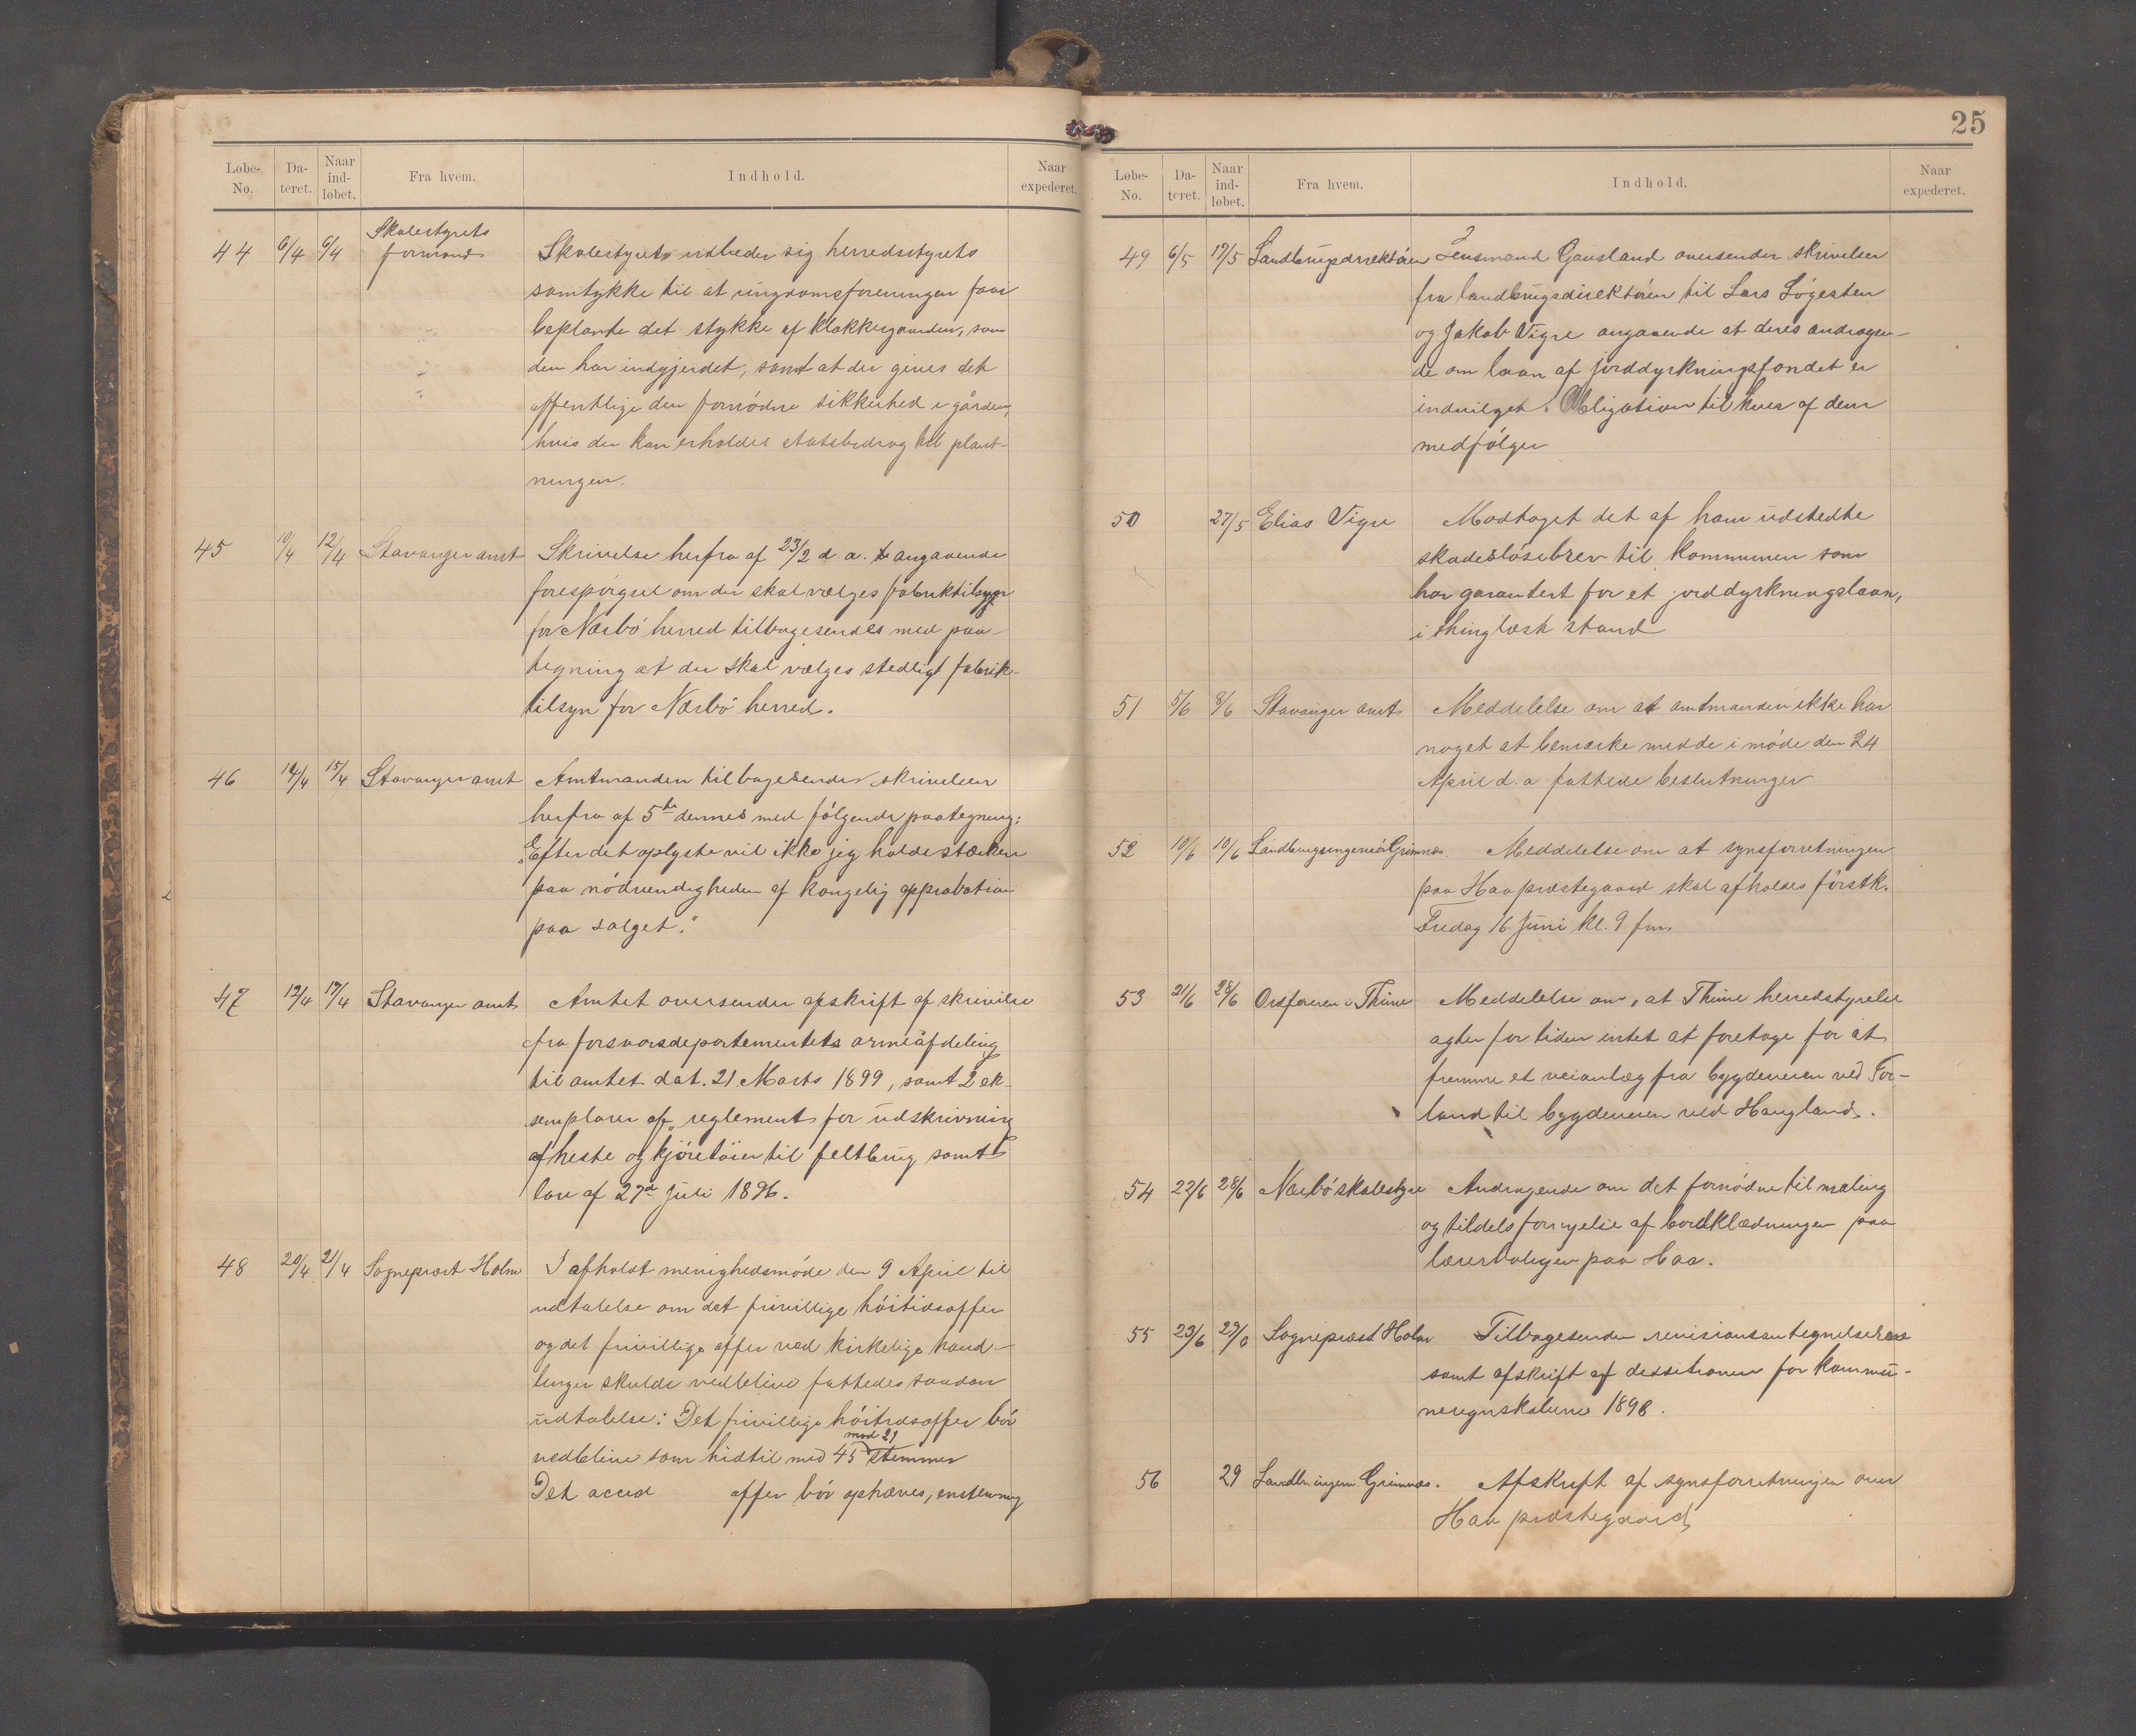 Løbe-No. Da-teret. Naar ind-løbet. Fra hvem. Indhold. Naar expederet.
44 6/4 6/4 Skolestyrets formand Skolestyret udbeder sig herredsstyrets
samtykke til at ungdomsforeningen faar
beplante det stykke af klokkergaarden, som
den har indgjerdet, samt at der gives det
offentlige den fornødne sikkerhed i gården,
hvis der kan erholdes statsbidrag til plant-
ningen.
45 10/4 12/4 Stavanger amt Skrivelse herfra af 23/2 d. a. angaaende
forespørgsel om der skal vælges fabriktilsyn
for Nærbø herred tilbagesendes med paa-
tegning at der skal vælges stedligt fabrik-
tilsyn for Nærbø herred.
46 14/4 15/4 Stavanger amt Amtmanden tilbagesender skrivelsen
herfra af 5te dennes med følgende paategning:
"Efter det oplyste vil ikke jeg holde stærken
paa nødvendigheden af kongelig approbation
paa salget."
47 12/4 17/4 Stavanger amt Amtet oversender afskrift af skrivelse
fra forsvarsdepartementets arméafdeling
til amtet dat. 21 Marts 1899, samt 2 ek-
semplarer af "reglement for udskrivning
af heste og kjøretøier til feltbrug samt
lov af 27de Juli 1896.
48 20/4 21/4 Sogneprest Holm I afholdt menighedsmøde den 9 April til
udtalelse om det frivillige høitidsoffer
og det frivillige offer ved kirkelige hand-
linger skulde vedblive fattedes saadan
udtalelse: Det frivillige høitidsoffer bør
vedblive som hidtil med 45 mod 21 stemmer
Det accid offer bør ophæves, enstemmig
25
Løbe-No. Da-teret. Naar ind-løbet. Fra hvem. Indhold. Naar expederet.
49 6/5 17/5 Landbrugsdirektøren Lensmand Gausland oversender skrivelser
fra landbrugsdirektøren til Lars Søgesten
og Jakob Vigre angaaende at deres andragen-
de om laan af jorddyrkningsfondet er
indvilget. Obligation til hver af dem
medfølger
50 27/5 Elias Vigre Modtaget det af ham udstedte
skadesløsebrev til kommunen som
har garantert for et jorddyrkningslaan,
i thinglæst stand
51 5/6 8/6 Stavanger amt Meddelelse om at amtmanden ikke har
noget at bemærke med de i møde den 24
April d. a fattede beslutninger
52 10/6 10/6 Landbrugsingeniør Grimnæs. Meddelelse om at synsforretningen
paa Haa præstegaard skal afholdes førstk.
Fredag 16 Juni kl. 9 fm.
53 21/6 28/6 Ordføreren i Thime Meddelelse om, at Thime herredstyrelse
agter for tiden intet at foretage for at
fremme et veianlæg fra bygdeveien ved For-
land til bygdeveien ved Haugland.
54 22/6 28/6 Nærbø skolestyre Andragende om det fornødne til maling
og tildels fornyelse af bordklædningen paa
lærerboligen paa Haa.
55 23/6 29/6 Sogneprest Holm Tilbagesender revisionsantegnelserne
samt afskrift af dessitionen for kommu-
neregnskaberne 1898.
56 29 Landbr. ingeni. Grimnæs. Afskrift af synsforretningen over
Haa præstegaard